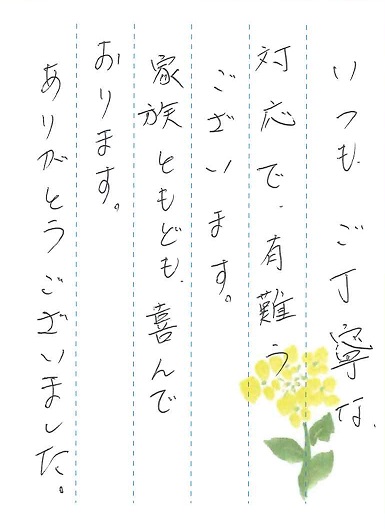 いつも、ご丁寧な、
対応で、有難う
ございます。
家族ともども、喜んで
おります。
ありがとうございました。